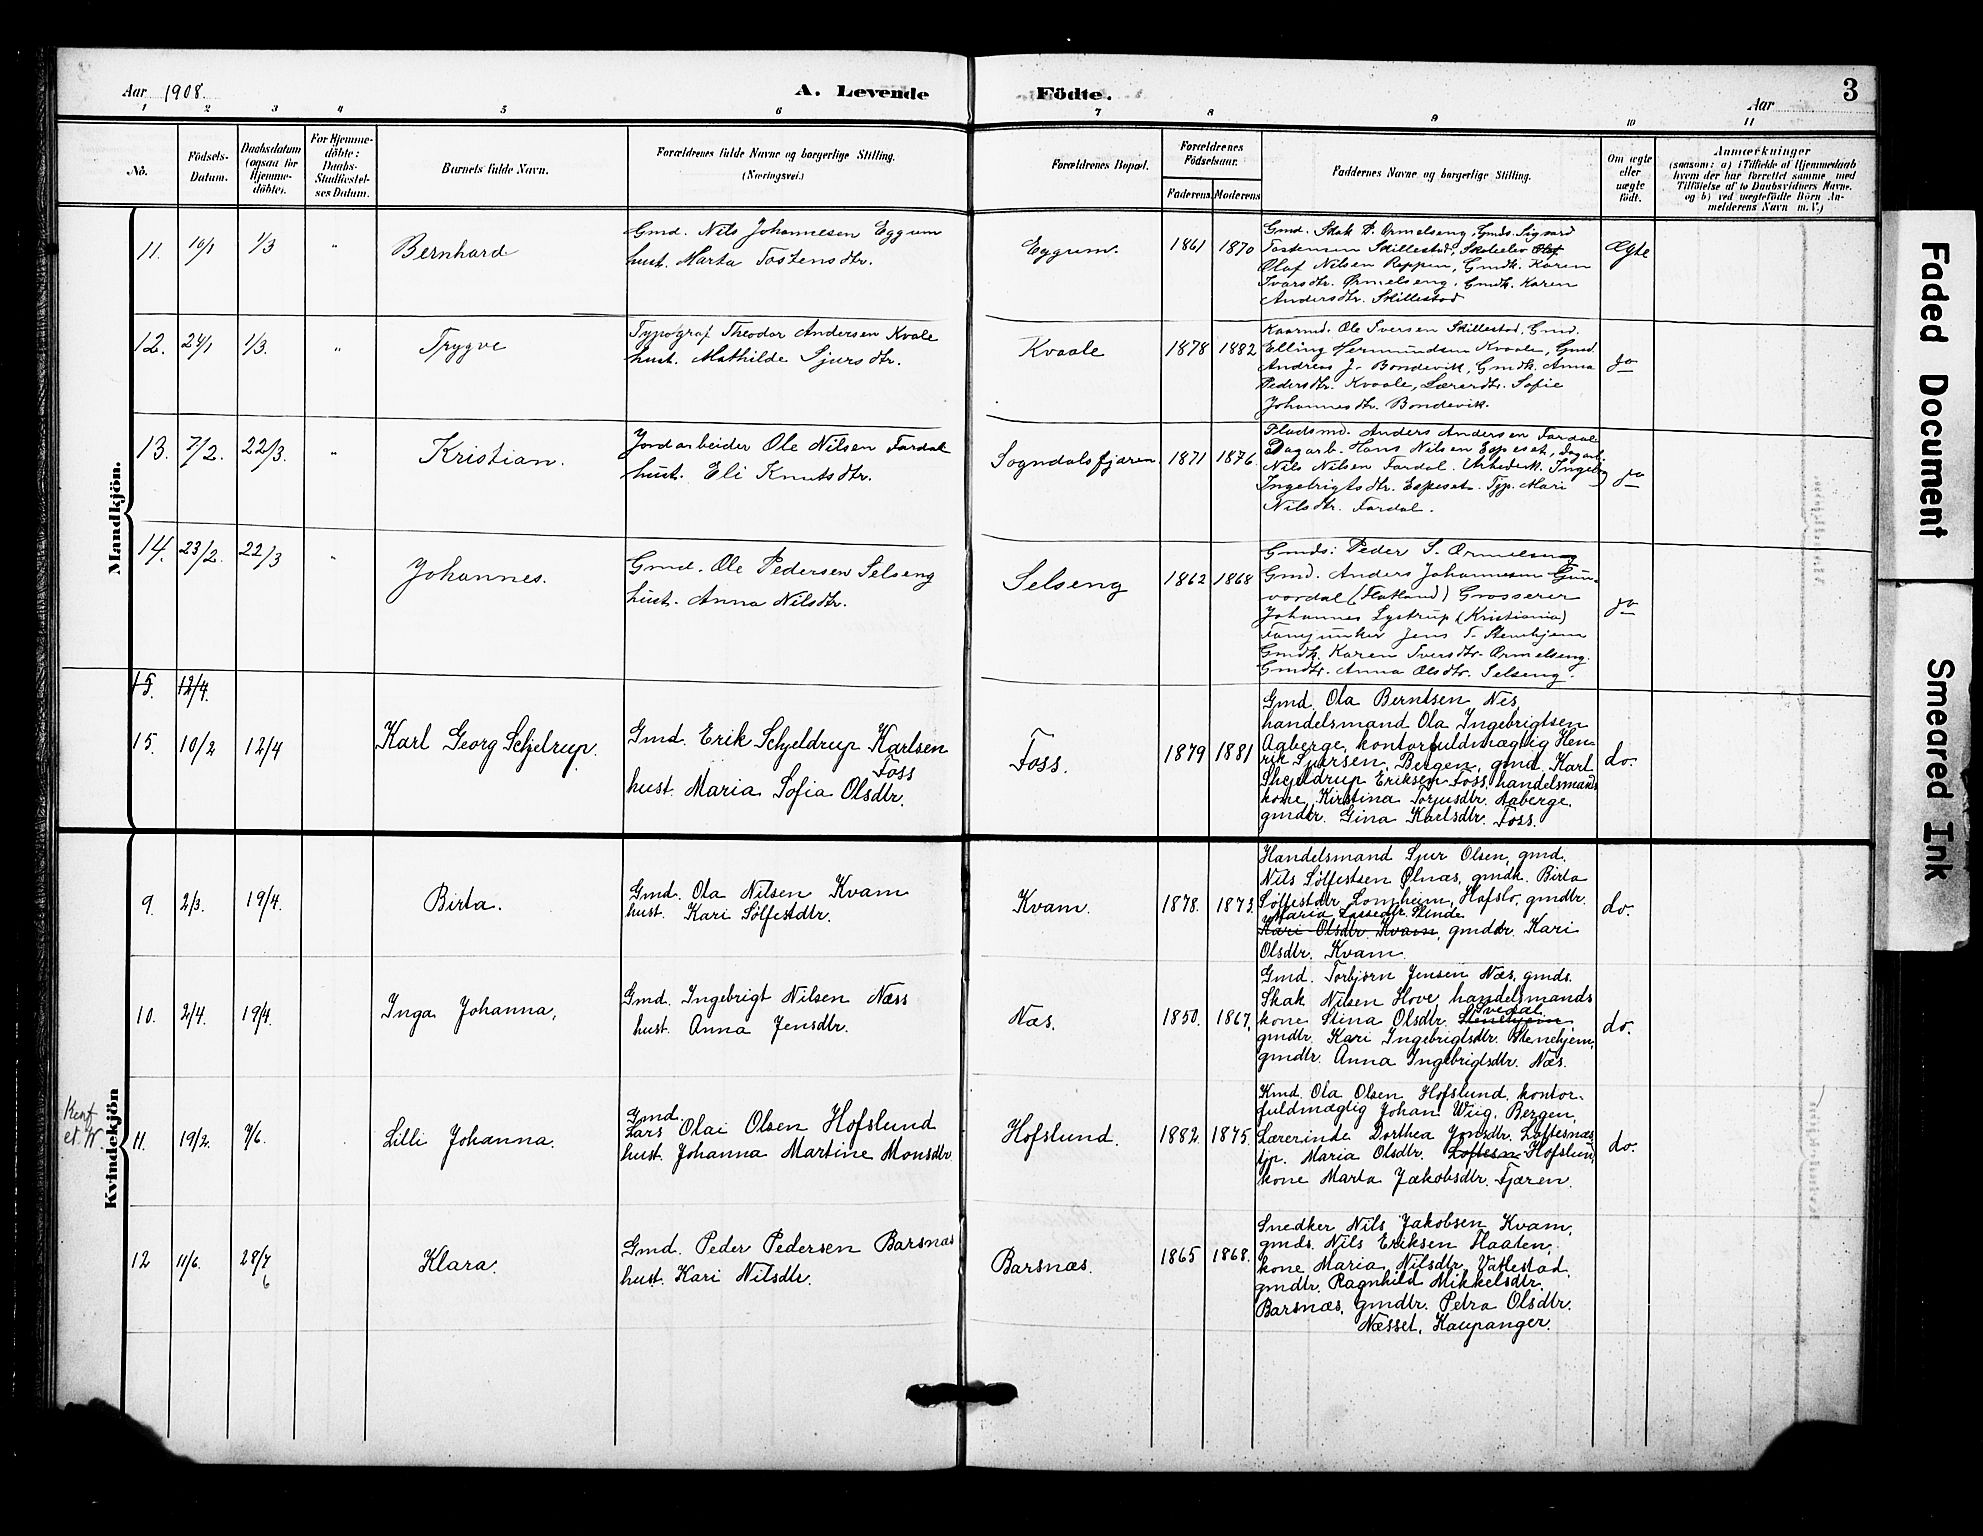 Aar 1908.
A. Levende Födte.
Aar
3
1 2 3 4 5 6 7 8 9 10 11
No.
Födsels-
Datum.
Daabsdatum
(ogsaa for
Hjemme-
döbte).
For Hjemme-
döbte:
Daabs-
Stadfæstel-
ses Datum.
Barnets fulde Navn.
Forældrenes fulde Navne og borgerlige Stilling.
(Næringsvei.)
Forældrenes Bopæl.
Forældrenes
Födselsaar.
Faderens Moderens
Faddernes Navne og borgerlige Stilling.
Om ægte
eller
uægte
födt.
Anmærkninger
(saasom: a) i Tilfælde af Hjemmedaab
hvem der har forrettet samme med
Tilföielse af to Daabsvidners Navne.
og b) ved uægtefödte Börn An-
melderens Navn m. V.)
Mandkjön.
11. 10/1 1/3 " Bernhard
Gmd. Nils Johannesen Eggum
hust. Marta Tostensdtr.
Eggum. 1861 1870
Gmd. Skak P. Ormelseng, Gmds. Sigurd
Tostensen Skillestad, Skoleelev Olaf
Olaf Nilsen Reppen, Gmdk. Karen
Ivarsdtr. Ormelseng, Gmdk. Karen
Andersdtr. Skillestad
Ægte
12. 24/1 1/3. " Trygve
Typograf Theodor Andersen Kvale
hust. Mathilde Sjursdtr.
Kvaale 1878 1882
Kaarmd. Ole Iversen Skillestad, Gmd.
Elling Hermundsen Kvaale, Gmd.
Andreas J. Bondevik, Gmdk. Anna
Pedersdtr. Kvaale, Lærerdtr. Sofie
Johannesdtr. Bondevik.
do
13. 7/2. 22/3. " Kristian.
Jordarbeider Ole Nilsen Fardal
hust. Eli Knutsdtr.
Sogndalsfjæren 1871 1876
Pladsmd. Anders Andersen Fardal
Dagarb. Hans Nilsen Espeset, Dagarb.
Nils Nilsen Fardal. Arbeiderk. Ingebor
Ingebrigtsdtr. Espeset. Tjp. Mari
Nilsdtr. Fardal.
do
14. 23/2. 22/3 " Johannes.
Gmd. Ole Pedersen Selseng
hust. Anna Nilsdtr.
Selseng 1862 1868
Gmds: Peder S. Ormelseng
Gmd. Anders Johannesen Gun-
vordal (Flatland) Grosserer
Johannes Lystrup (Kristiania)
Fanejunker Jens T. Stenehjem
Gmdk. Karen Iversdtr. Ormelseng
Gmdtr. Anna Olsdtr. Selseng.
do
15. 12/4.
15. 10/2 12/4 Karl Georg Schjelrup.
Gmd. Erik Schjeldrup Karlsen
Foss
hust. Maria Sofia Olsdtr.
Foss. 1879 1881
Gmd. Ola Berntsen Nes,
handelsmand Ola Ingebrigtsen
Aaberge, kontorfuldmægtig Hen-
rik Sjursen, Bergen, gmd. Karl
Shejeldrup Eriksen Foss, handelsmands
kone Kirstina Torjusdtr. Aaberge,
gmdtr. Gina Karlsdtr. Foss.
do.
Kvindekjön
9. 2/3. 19/4. Birta.
Gmd. Ola Nilsen Kvam
hust. Kari Sölfestdtr.
Kvam. 1878. 1873.
Handelsmand Sjur Olsen, gmd.
Nils Sölfestsen Ölnæs, gmdk. Birta
Sölfestdtr. Lomheim, Hafslo, gmdtr.
Maria Lassedtr. Slinde
Kari Olsdtr. Kvam, gmddtr. Kari
Olsdtr. Kvam.
do.
10. 2/4. 19/4. Inga Johanna,
Gmd. Ingebrigt Nilsen Næss
hust. Anna Jensdtr.
Næs. 1850. 1867.
Gmd. Torbjörn Jensen Næs, gmds.
Skak Nilsen Hove, handelsmands
Svedal.
kone Stina Olsdtr. Stenehjem
gmdtr. Kari Ingebrigtsdtr. Stenehjem,
gmdtr. Anna Ingebrigtsdtr. Næs.
do.
Konf.
et. W.
11. 19/2. 7/6. Lilli Johanna.
Gmd.
Lars Olai Olsen Hofslund
hust. Johanna Martine Monsdtr
Hofslund. 1882. 1875.
Kmd. Ola Olsen Hofslund, kontor-
fuldmægtig Johan Wiig, Bergen,
Lærerinde Dorthea Jonsdtr. Loftesnæs,
tjp. Maria Olsdtr. Loftesn Hofslun,
kone Marta Jakobsdtr. Fjæren.
do.
12 11/6. 28/7
6
Klara.
Gmd. Peder Pedersen Barsnæs
hust. Kari Nilsdtr.
Barsnæs. 1865 1868.
Snedker Nils Jakobsen Kvam,
gmds. Nils Eriksen Flaaten,
kone Maria Nilsdtr. Vatlestad,
gmdtr. Ragnhild Mikkelsdtr.
Barsnæs, gmdtr. Petra Olsdtr.
Næsset, Kaupanger.
Faded Document
Smeared Ink